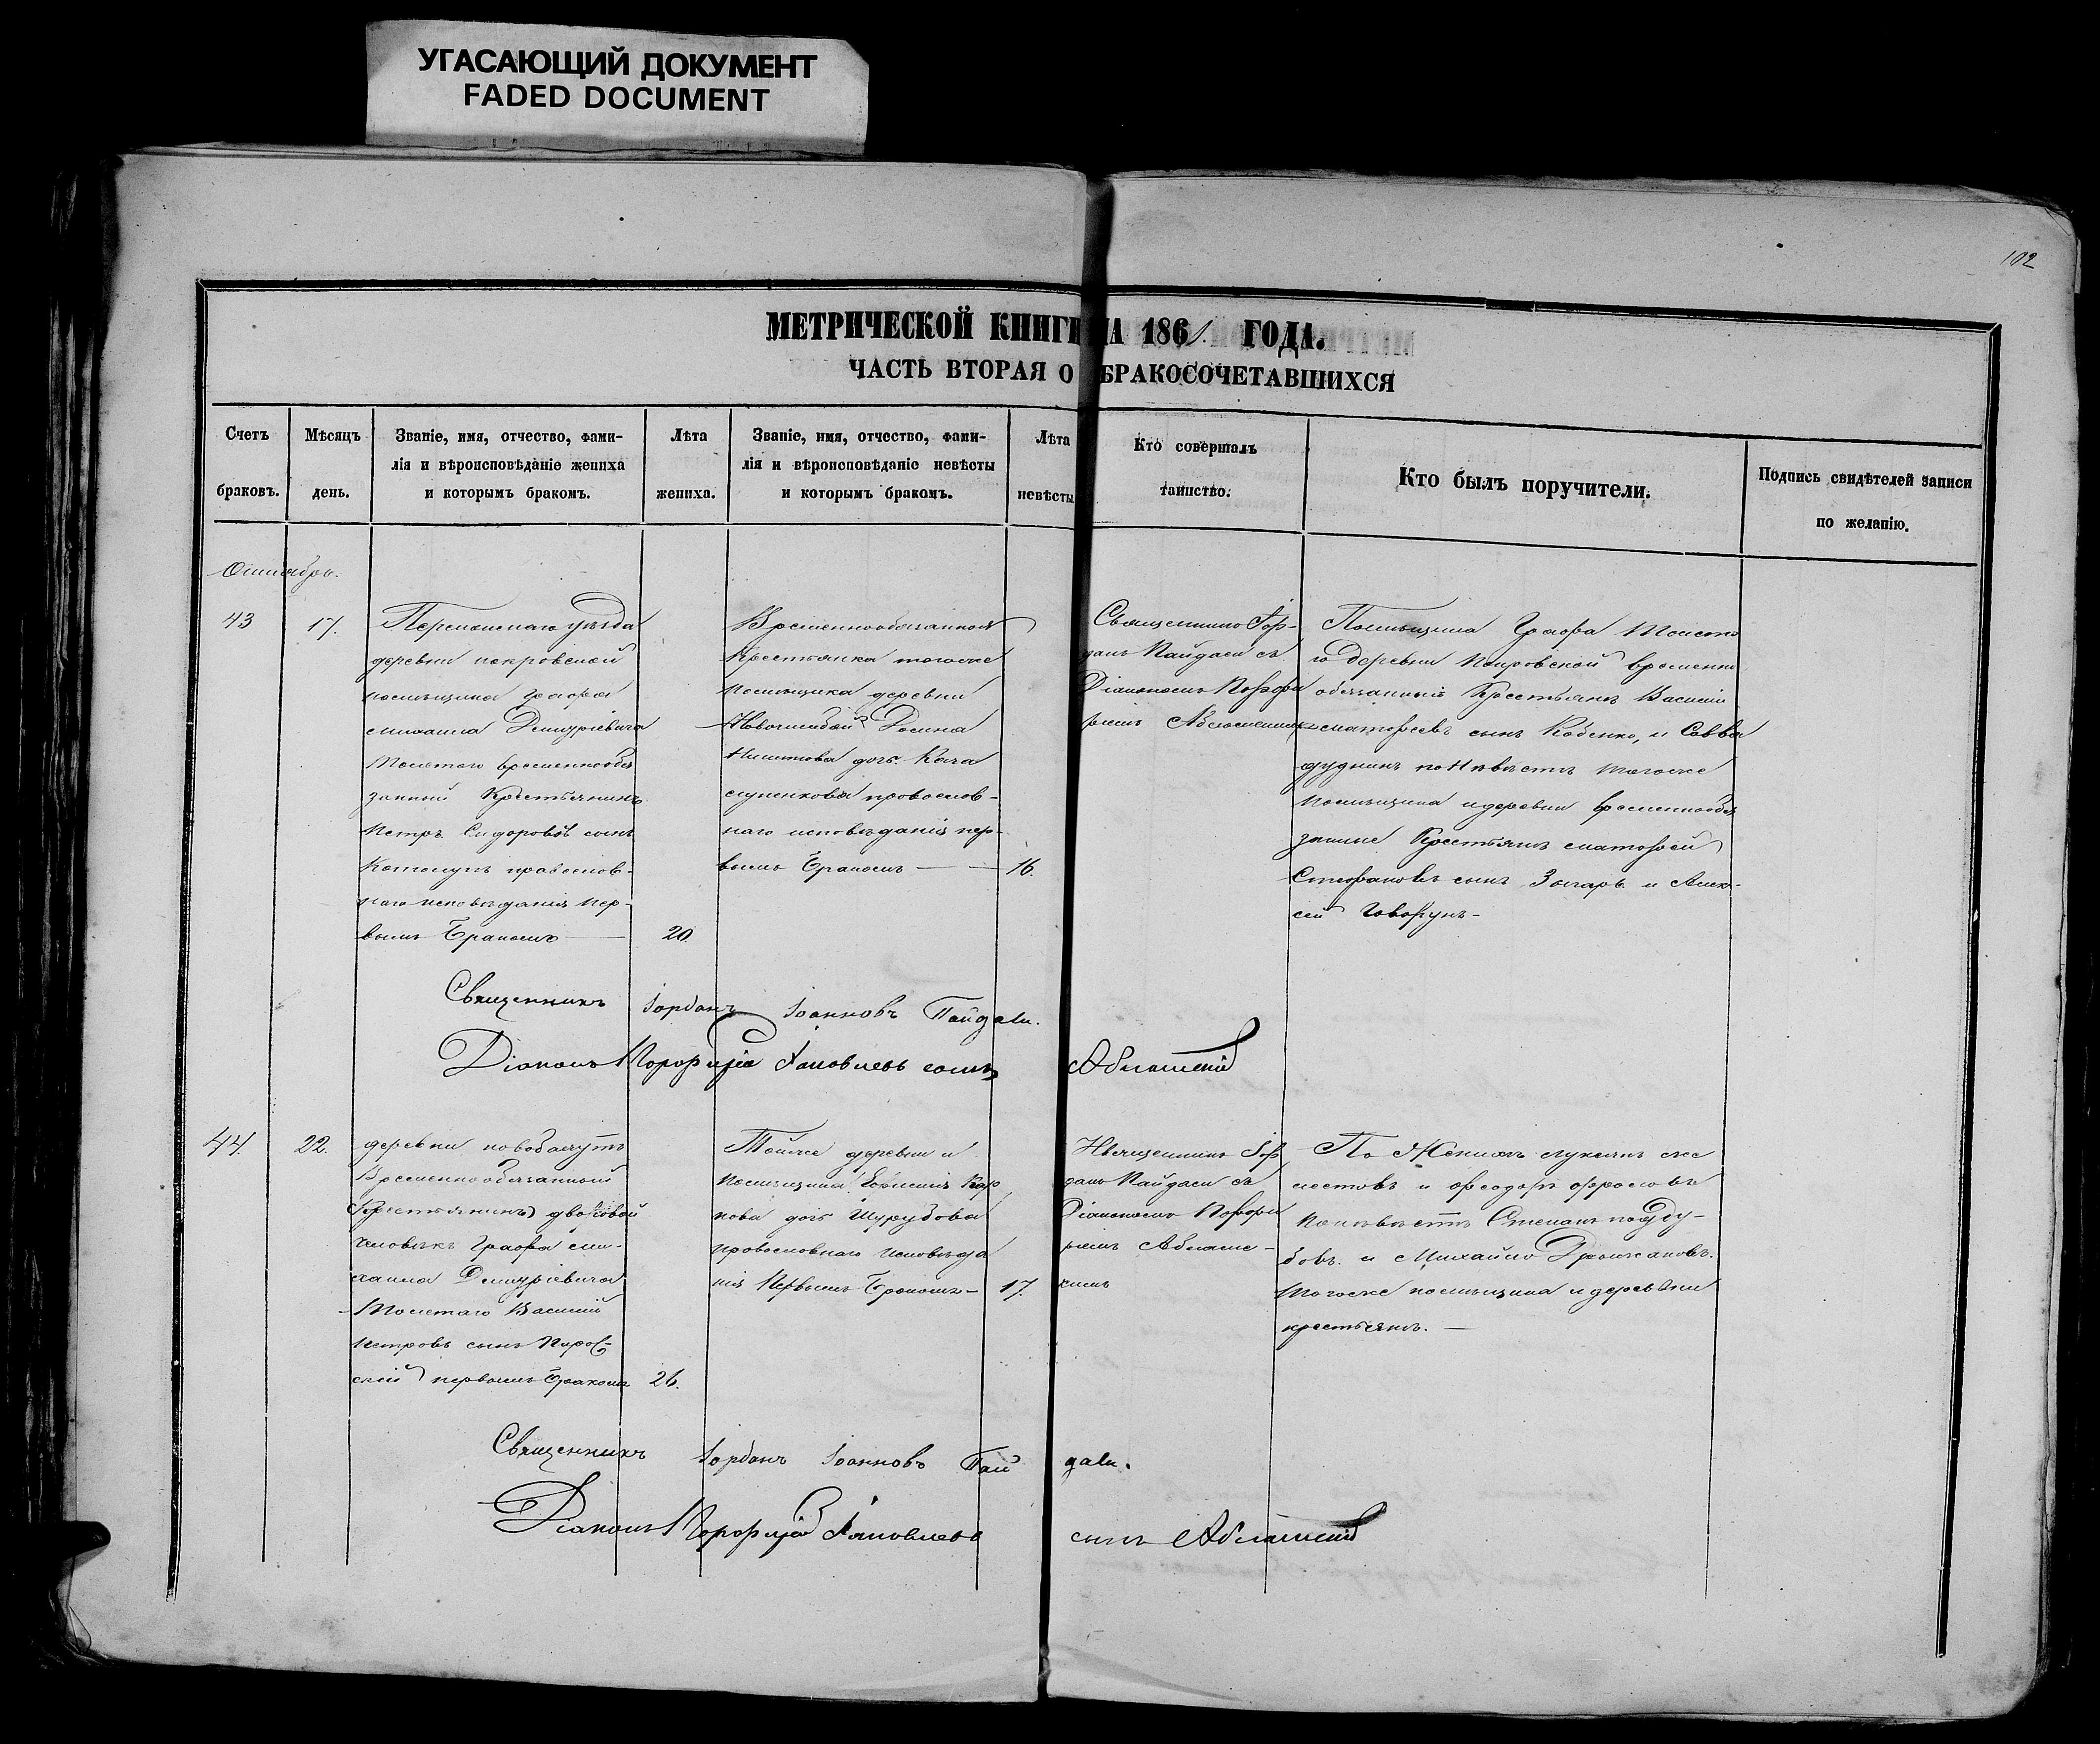 УГАСАЮЩИЙ ДОКУМЕНТ
FADED DOCUMENT
102
МЕТРИЧЕСКОЙ КНИГИ НА 1861 ГОДА.
ЧАСТЬ ВТОРАЯ О БРАКОСОЧЕТАВШИХСЯ
Счетъ
браковъ.
Мѣсяцъ
день.
Званіе, имя, отчество, фами-
лія и вѣроисповѣданіе жениха
и которымъ бракомъ.
Лѣта
жениха.
Званіе, имя, отчество, фами-
лія и вѣроисповѣданіе невѣсты
и которымъ бракомъ.
Лѣта
невѣсты
Кто совершалъ
таинство.
Кто былъ поручители.
Подпись свидѣтелей записи
по желанію.
Октябрь.
43
17.
уѣзда
деревни покровской
помѣщика графа
михаила Дмитріевича
Толстого временнообя
занный Крестьянинъ
Петръ Сидоровъ сынъ
православ-
наго исповѣданія пер-
вымъ бракомъ
20
Временнообязанная
Крестьянка тогоже
помѣщика деревни
дочь
православ-
наго исповѣданія пер-
вымъ бракомъ
16.
Священникъ Іор-
данъ Пайдаси съ
Діакономъ Порфи
ріемъ
Помѣщика Графа Толсто
го деревни Покровской временно
обязанный Крестьянъ Василій
матфеевъ сынъ Кобенко, и Савва
дудникъ по Невѣстѣ тогоже
помѣщика и деревни временнообя
занные Крестьянъ матфей
Стефановъ сынъ и Алек-
сей Говорунъ-
Священникъ Іорданъ Іоанновъ Пайдаси.
Діаконъ Порфирій Іаковлевъ сынъ
44.
22.
деревни
Временнообязанный
Крестьянинъ дворовой
человѣкъ Графа ми-
хаила Дмитріевича
Толстаго Василий
Петровъ сынъ
скій первымъ бракомъ
26.
Тойже деревни и
помѣщика Кар
пова дочь Шурубова
православнаго исповѣда
нія Первымъ бракомъ-
17.
Священникъ Іор
данъ Пайдаси съ
Діакономъ Порфи
ріемъ
кимъ
По Женихѣ лукьянъ
и феодоръ фроловъ
по невѣстѣ Степанъ
и Михайло
тогоже помѣщика и деревни
крестьянъ.
Священникъ Іорданъ Іоанновъ Пайдаси.
Діаконъ Порфирій Іаковлевъ сынъ